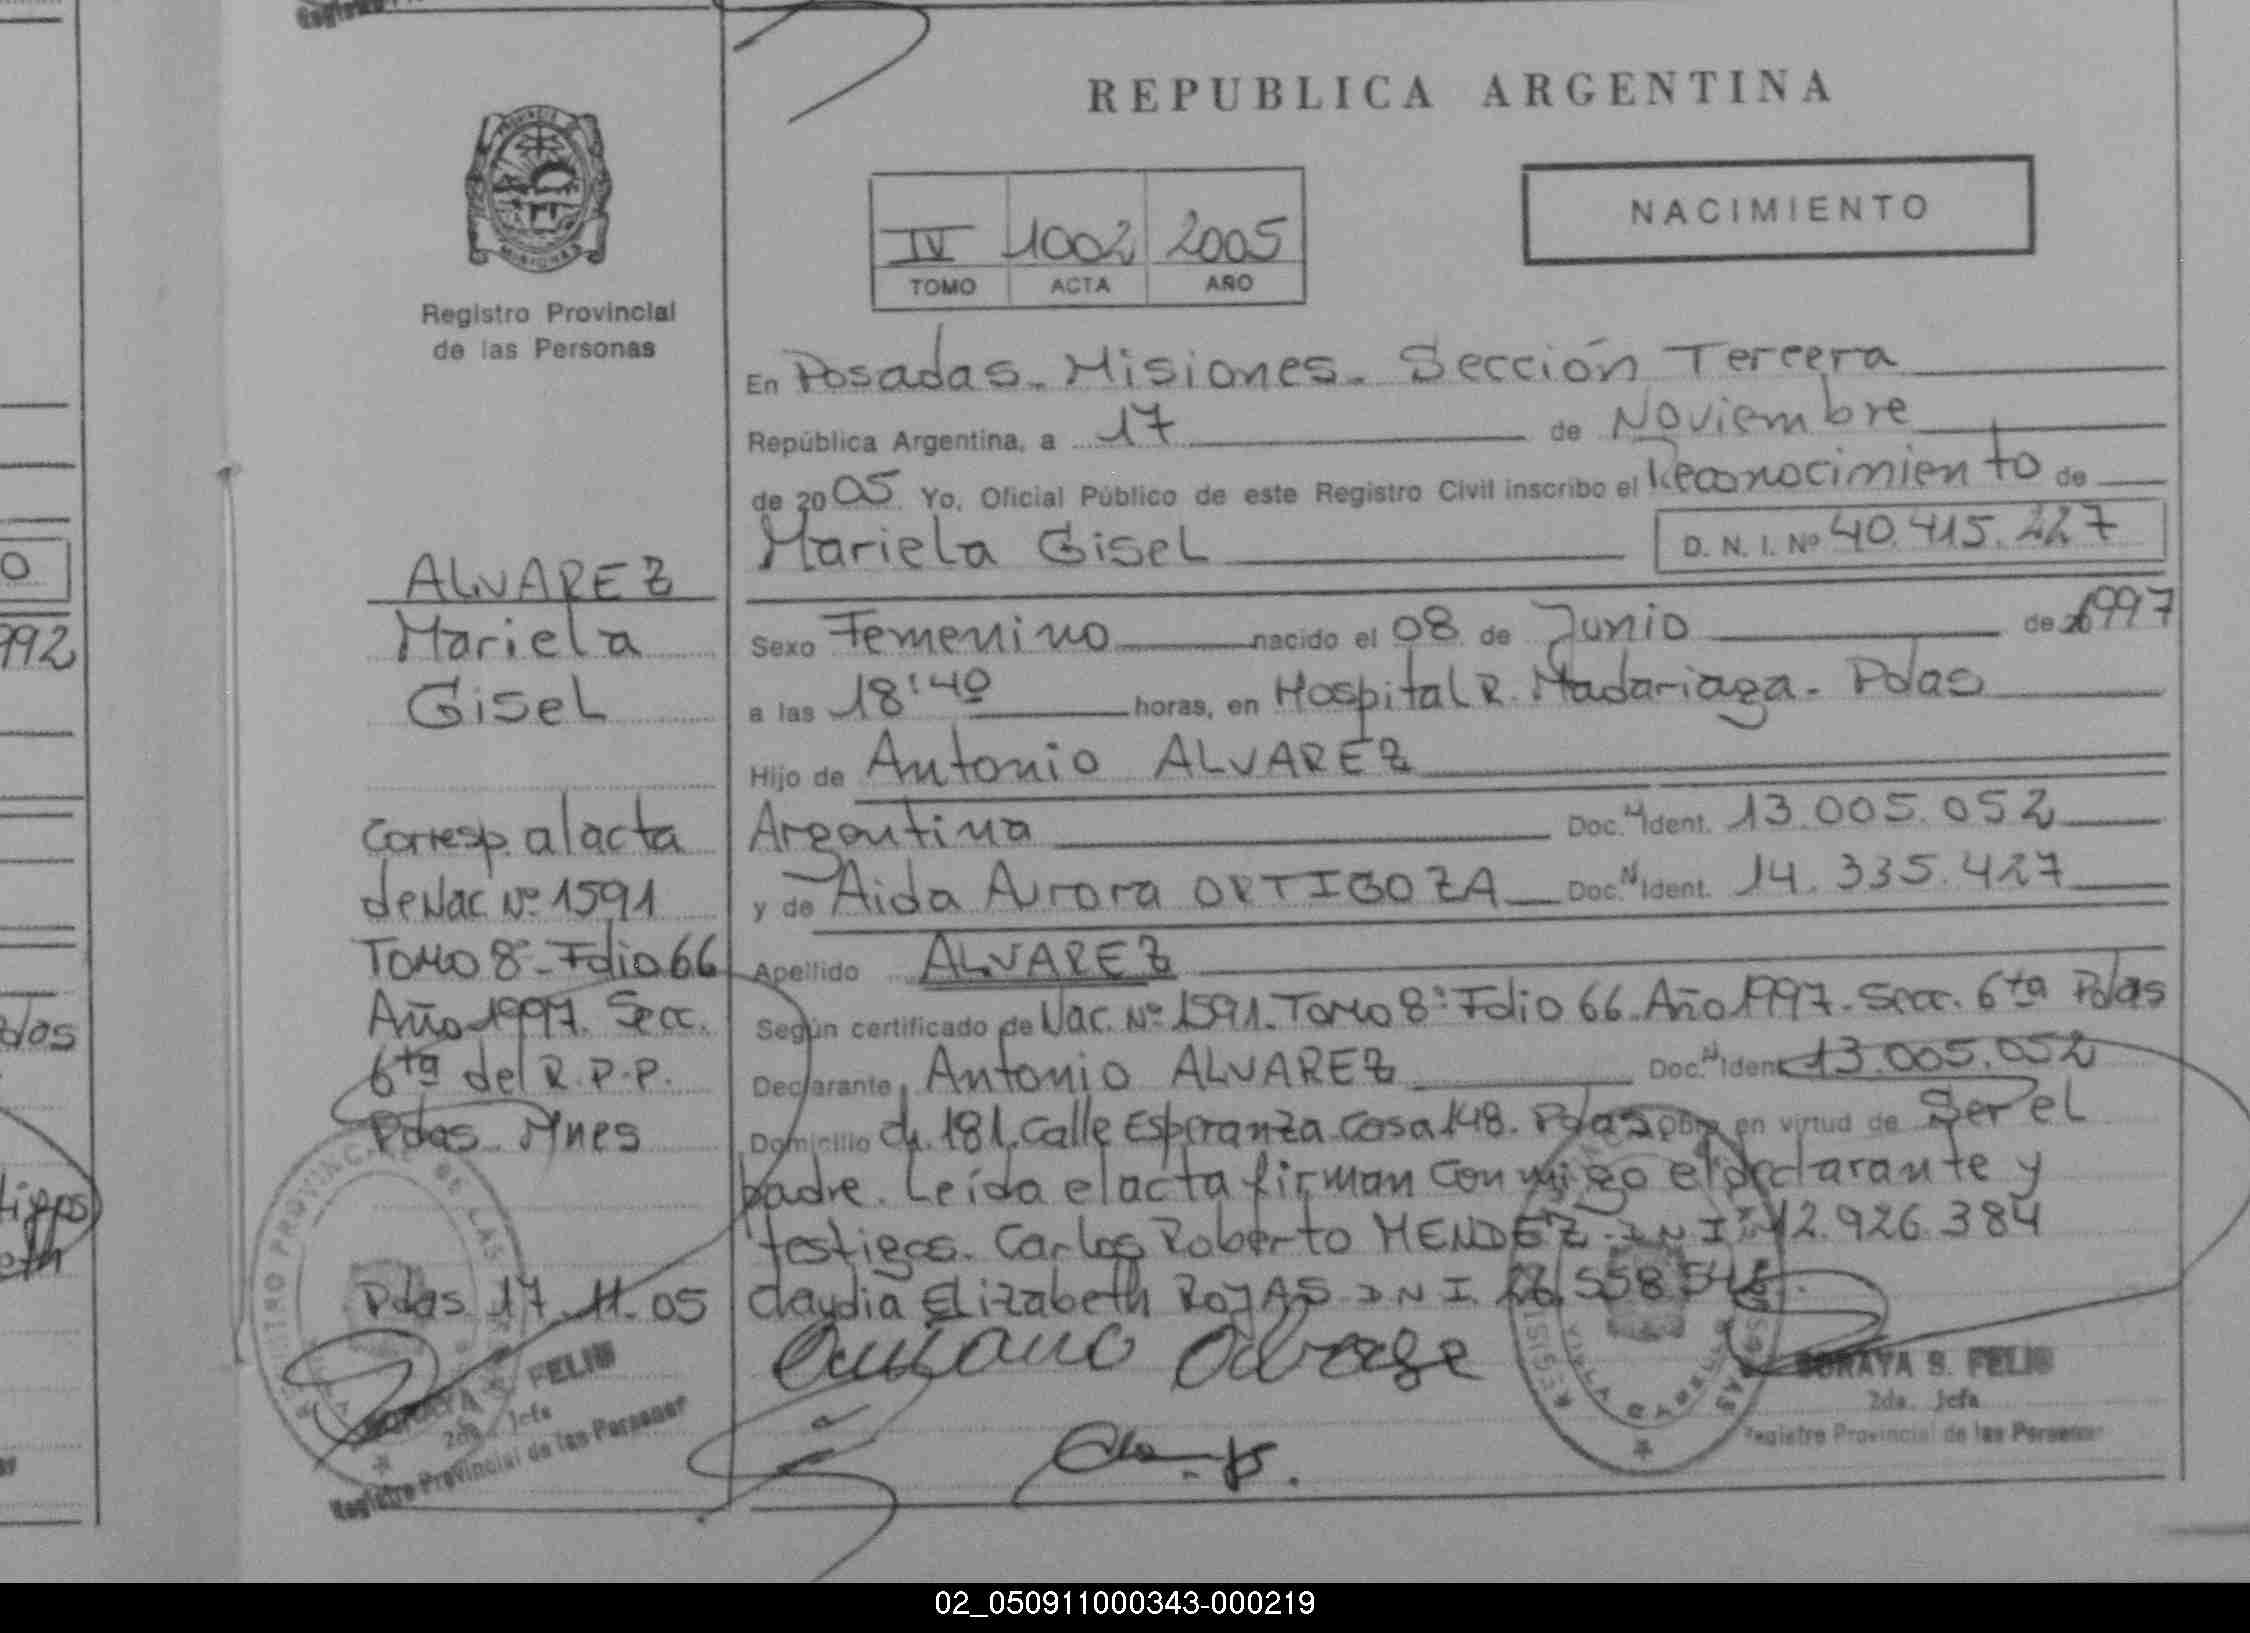 REPUBLICA ARGENTINA
NACIMIENTO
IV 1002 2005
TOMO ACTA AÑO
PROVINCIA DE
MISIONES
Registro Provincial
de las Personas
En Posadas. Misiones. Sección Tercera
República Argentina, a 17 de Noviembre
de 2005 Yo, Oficial Público de este Registro Civil inscribo el Reconocimiento de
Mariela Gisel D. N. I. Nº 40.415.227
Sexo Femenino nacido el 08 de Junio de 1997
a las 18:40 horas, en Hospital R. Madariaga. Pdas
Hijo de Antonio ALVAREZ
Argentina Doc. N Ident. 13.005.052
y de Aida Aurora ORTIGOZA Doc. N Ident. 14.335.427
Apellido ALVAREZ
Según certificado de Nac. Nº 1591. Tomo 8º Folio 66. Año 1997. Secc. 6ta Pdas
Declarante Antonio ALVAREZ Doc. N Ident 13.005.052
Domicilio ch. 181. Calle Esperanza Casa 148. Pdas obra en virtud de Ser el
padre. Leída el acta firman conmigo el declarante y
testigos. Carlos Roberto MENDEZ. DNI 12.926.384
Claudia Elizabeth ROJAS DNI
ALVAREZ
Mariela
Gisel
Corresp. al acta
de Nac. Nº 1591
Tomo 8º Folio 66
Año 1997. Secc.
6ta del R.P.P.
Pdas. Mnes
Pdas 17.11.05
SORAYA S. FELIU
2da. Jefa
Registro Provincial de las Personas
SORAYA S. FELIU
2da. Jefa
Registro Provincial de las Personas
992
02_050911000343-000219